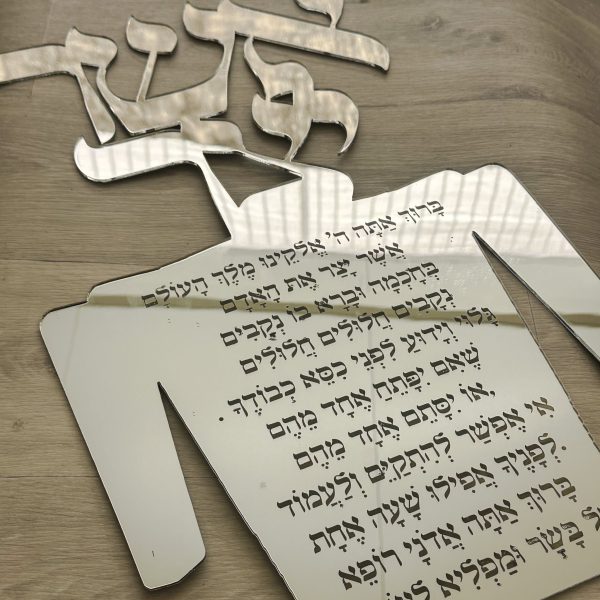 בָּרוּךְ אַתָּה ה' אֱלֹקֵינוּ מֶלֶךְ הָעוֹלָם
אֲשֶׁר יָצַר אֶת הָאָדָם
בְּחָכְמָה וּבָרָא בוֹ נְקָבִים
נְקָבִים חֲלוּלִים חֲלוּלִים
גָּלוּי וְיָדוּעַ לִפְנֵי כִסֵּא כְבוֹדֶךָ.
שֶׁאִם יִפָּתֵחַ אֶחָד מֵהֶם
אוֹ יִסָּתֵם אֶחָד מֵהֶם,
אִי אֶפְשַׁר לְהִתְקַיֵּם וְלַעֲמוֹד
לְפָנֶיךָ אֲפִילוּ שָׁעָה אֶחָת.
בָּרוּךְ אַתָּה אֲדֹנָי רוֹפֵא
בָּשָׂר וּמַפְלִיא